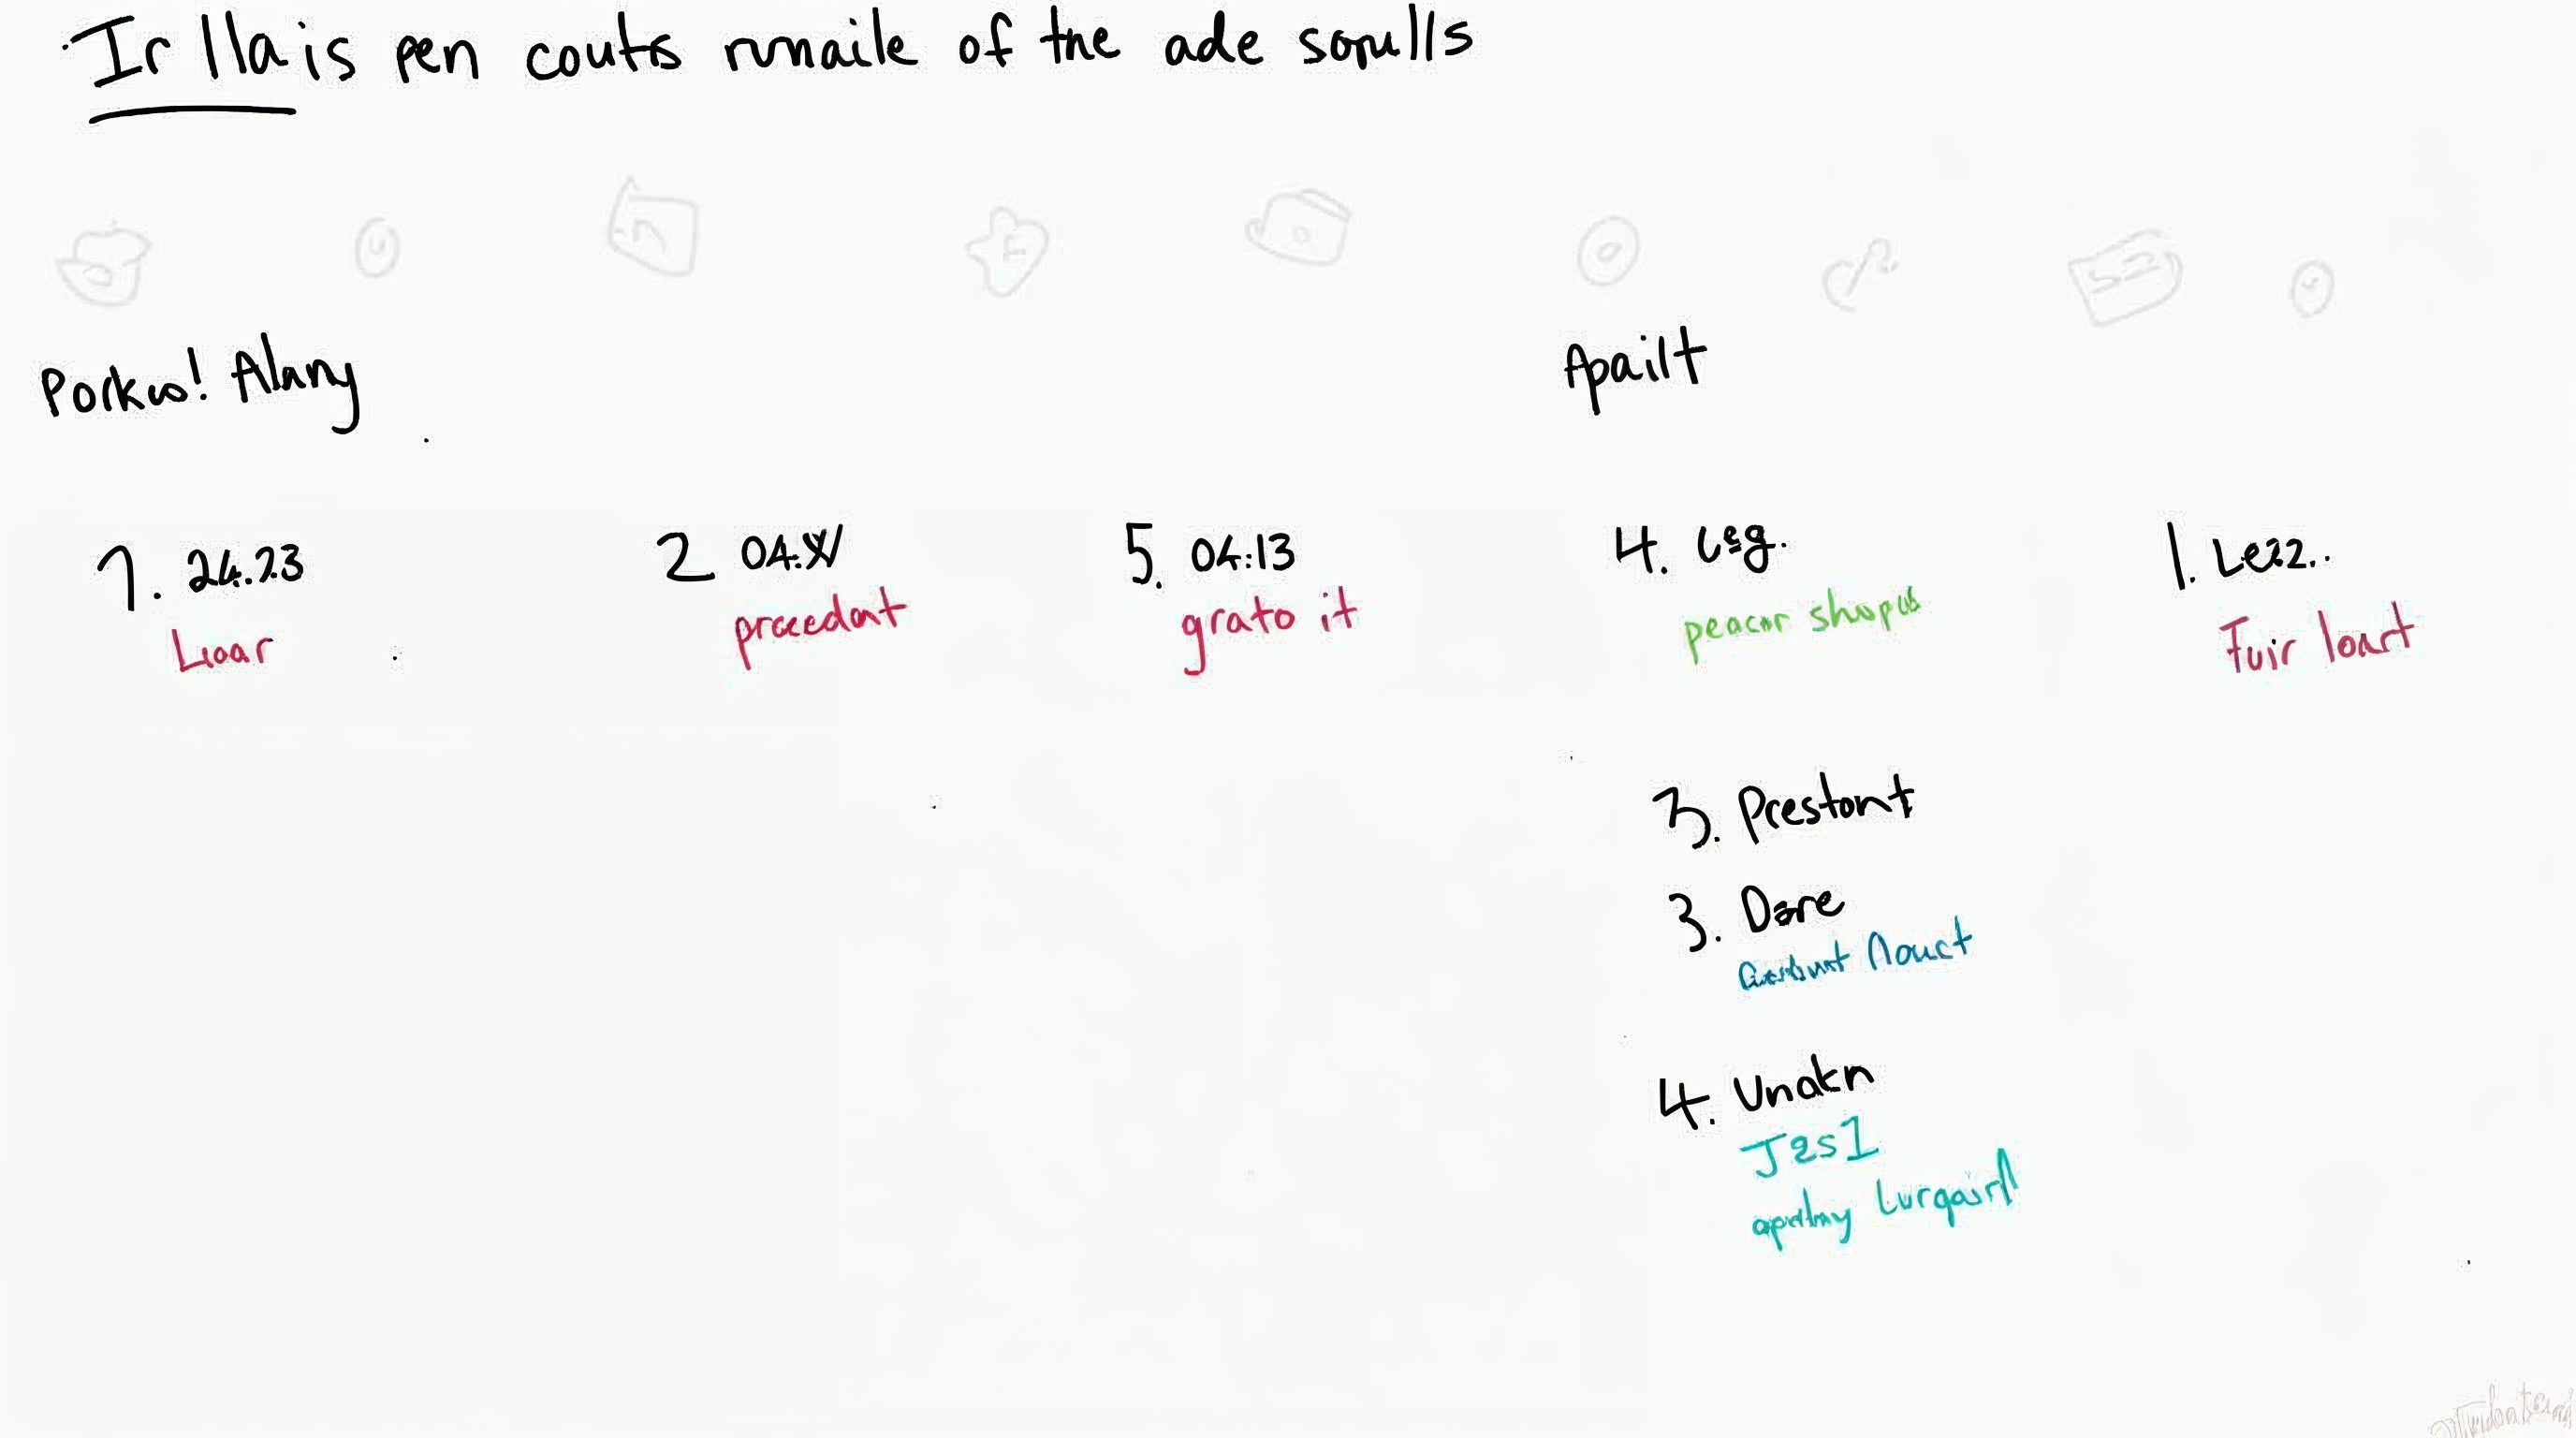 Ir lla is pen couts runaile of tne ade sorulls
Porkw! Alany
Apailt
7. 24.23
Lioar
2 04:
praedant
5. 04:13
grato it
4. Leg.
peacor shopus
1. Le22..
Fuir loart
3. Prestont
3. Dare
Nouct
4. Unakn
J2s1
Lurgairl